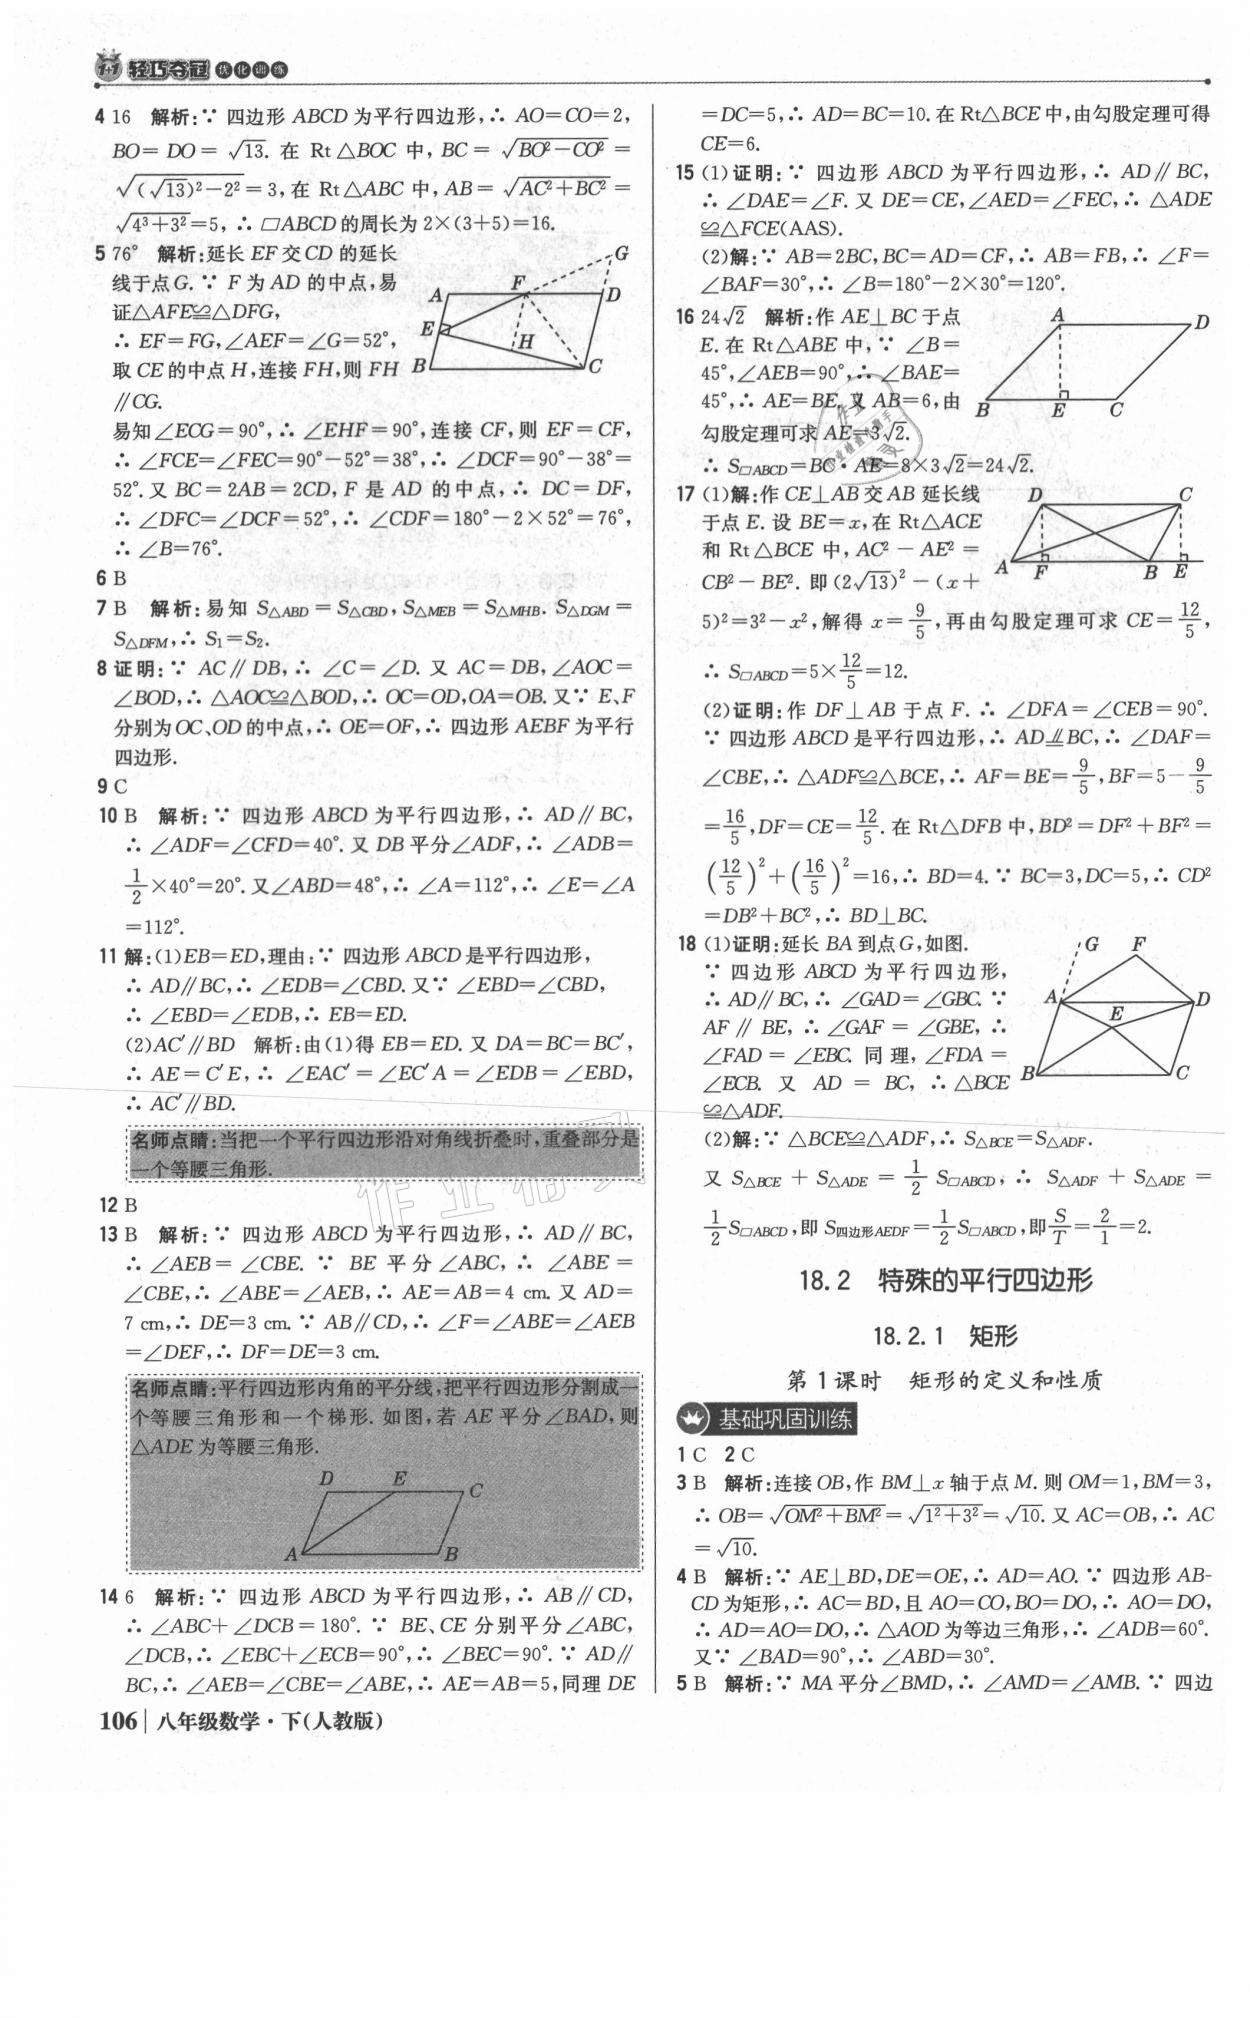 1+1 轻巧夺冠 优化训练
4 16 解析:∵ 四边形 ABCD 为平行四边形,∴ AO=CO=2,
BO=DO=√13. 在 Rt△BOC 中, BC=√(BO²-CO²)=
√((√13)²-2²)=3,在 Rt△ABC 中, AB=√(AC²+BC²)=
√(4³+3²)=5, ∴ □ABCD的周长为 2×(3+5)=16.
5 76° 解析:延长 EF 交 CD 的延长
线于点 G. ∵ F 为 AD 的中点,易
证△AFE≌△DFG,
∴ EF=FG,∠AEF=∠G=52°,
取 CE 的中点 H,连接 FH,则 FH
∥CG.
易知∠ECG=90°,∴ ∠EHF=90°,连接 CF,则 EF=CF,
∴ ∠FCE=∠FEC=90°-52°=38°,∴ ∠DCF=90°-38°=
52°. 又 BC=2AB=2CD, F 是 AD 的中点,∴ DC=DF,
∴ ∠DFC=∠DCF=52°,∴ ∠CDF=180°-2×52°=76°,
∴ ∠B=76°.
G
A F D
E
H
B C
6 B
7 B 解析:易知 S△ABD=S△CBD, S△MEB=S△MHB. S△DGM=
S△DFM,∴ S₁=S₂.
8 证明:∵ AC∥DB,∴ ∠C=∠D. 又 AC=DB,∠AOC=
∠BOD,∴ △AOC≌△BOD,∴ OC=OD,OA=OB. 又∵ E、F
分别为OC、OD的中点,∴ OE=OF,∴ 四边形 AEBF 为平行
四边形.
9 C
10 B 解析:∵ 四边形 ABCD 为平行四边形,∴ AD∥BC,
∴ ∠ADF=∠CFD=40°. 又 DB 平分∠ADF,∴ ∠ADB=
1/2×40°=20°. 又∠ABD=48°,∴ ∠A=112°,∴ ∠E=∠A
=112°.
11 解:(1)EB=ED,理由:∵ 四边形 ABCD是平行四边形,
∴ AD∥BC,∴ ∠EDB=∠CBD. 又∵ ∠EBD=∠CBD,
∴ ∠EBD=∠EDB,∴ EB=ED.
(2)AC′∥BD 解析:由(1)得 EB=ED. 又 DA=BC=BC′,
∴ AE=C′E,∴ ∠EAC′=∠EC′A=∠EDB=∠EBD,
∴ AC′∥BD.
名师点睛:当把一个平行四边形沿对角线折叠时,重叠部分是
一个等腰三角形.
12 B
13 B 解析:∵ 四边形 ABCD 为平行四边形,∴ AD∥BC,
∴ ∠AEB=∠CBE. ∵ BE 平分∠ABC, ∴ ∠ABE=
∠CBE,∴ ∠ABE=∠AEB,∴ AE=AB=4 cm. 又 AD=
7 cm,∴ DE=3 cm. ∵ AB∥CD,∴ ∠F=∠ABE=∠AEB
=∠DEF,∴ DF=DE=3 cm.
名师点睛:平行四边形内角的平分线,把平行四边形分割成一
个等腰三角形和一个梯形. 如图,若 AE 平分∠BAD,则
△ADE 为等腰三角形.
D E C
A B
14 6 解析:∵ 四边形 ABCD 为平行四边形,∴ AB∥CD,
∴ ∠ABC+∠DCB=180°. ∵ BE、CE 分别平分∠ABC,
∠DCB,∴ ∠EBC+∠ECB=90°,∴ ∠BEC=90°. ∵ AD∥
BC,∴ ∠AEB=∠CBE=∠ABE,∴ AE=AB=5,同理 DE
=DC=5,∴ AD=BC=10. 在 Rt△BCE 中,由勾股定理可得
CE=6.
15 (1)证明:∵ 四边形 ABCD 为平行四边形,∴ AD∥BC,
∴ ∠DAE=∠F. 又 DE=CE,∠AED=∠FEC,∴ △ADE
≌△FCE(AAS).
(2)解:∵ AB=2BC,BC=AD=CF,∴ AB=FB,∴ ∠F=
∠BAF=30°,∴ ∠B=180°-2×30°=120°.
16 24√2 解析:作 AE⊥BC 于点
E. 在 Rt△ABE 中,∵ ∠B=
45°,∠AEB=90°,∴ ∠BAE=
45°,∴ AE=BE. 又 AB=6,由
勾股定理可求 AE=3√2.
∴ S□ABCD=BC·AE=8×3√2=24√2.
A D
B E C
17 (1)解:作 CE⊥AB 交 AB 延长线
于点 E. 设 BE=x,在 Rt△ACE
和 Rt△BCE 中, AC²-AE²=
CB²-BE². 即 (2√13)²-(x+
5)²=3²-x²,解得 x=9/5,再由勾股定理可求 CE=12/5,
∴ S□ABCD=5×12/5=12.
D C
A F B E
(2)证明:作 DF⊥AB 于点 F. ∴ ∠DFA=∠CEB=90°.
∵ 四边形 ABCD 是平行四边形,∴ AD⫽BC,∴ ∠DAF=
∠CBE,∴ △ADF≌△BCE,∴ AF=BE=9/5,BF=5-9/5
=16/5,DF=CE=12/5. 在 Rt△DFB 中,BD²=DF²+BF²=
(12/5)²+(16/5)²=16,∴ BD=4. ∵ BC=3,DC=5,∴ CD²
=DB²+BC²,∴ BD⊥BC.
18 (1)证明:延长 BA 到点 G,如图.
∵ 四边形 ABCD 为平行四边形,
∴ AD∥BC,∴ ∠GAD=∠GBC. ∵
AF∥BE,∴ ∠GAF=∠GBE,∴
∠FAD=∠EBC. 同理,∠FDA=
∠ECB. 又 AD=BC, ∴ △BCE
≌△ADF.
G F
A D
E
B C
(2)解:∵ △BCE≌△ADF,∴ S△BCE=S△ADF.
又 S△BCE+S△ADE=1/2 S□ABCD, ∴ S△ADF+S△ADE=
1/2 S□ABCD,即 S四边形AEDF=1/2 S□ABCD,即 S/T=2/1=2.
18.2 特殊的平行四边形
18.2.1 矩形
第1课时 矩形的定义和性质
基础巩固训练
1 C 2 C
3 B 解析:连接 OB,作 BM⊥x 轴于点 M. 则 OM=1,BM=3,
∴ OB=√(OM²+BM²)=√(1²+3²)=√10. 又 AC=OB,∴ AC
=√10.
4 B 解析:∵ AE⊥BD,DE=OE,∴ AD=AO. ∵ 四边形 AB-
CD 为矩形,∴ AC=BD,且 AO=CO,BO=DO,∴ AO=DO,
∴ AD=AO=DO,∴ △AOD 为等边三角形,∴ ∠ADB=60°.
又∵ ∠BAD=90°,∴ ∠ABD=30°.
5 B 解析:∵ MA 平分∠BMD,∴ ∠AMD=∠AMB. ∵ 四边
106 八年级数学·下(人教版)